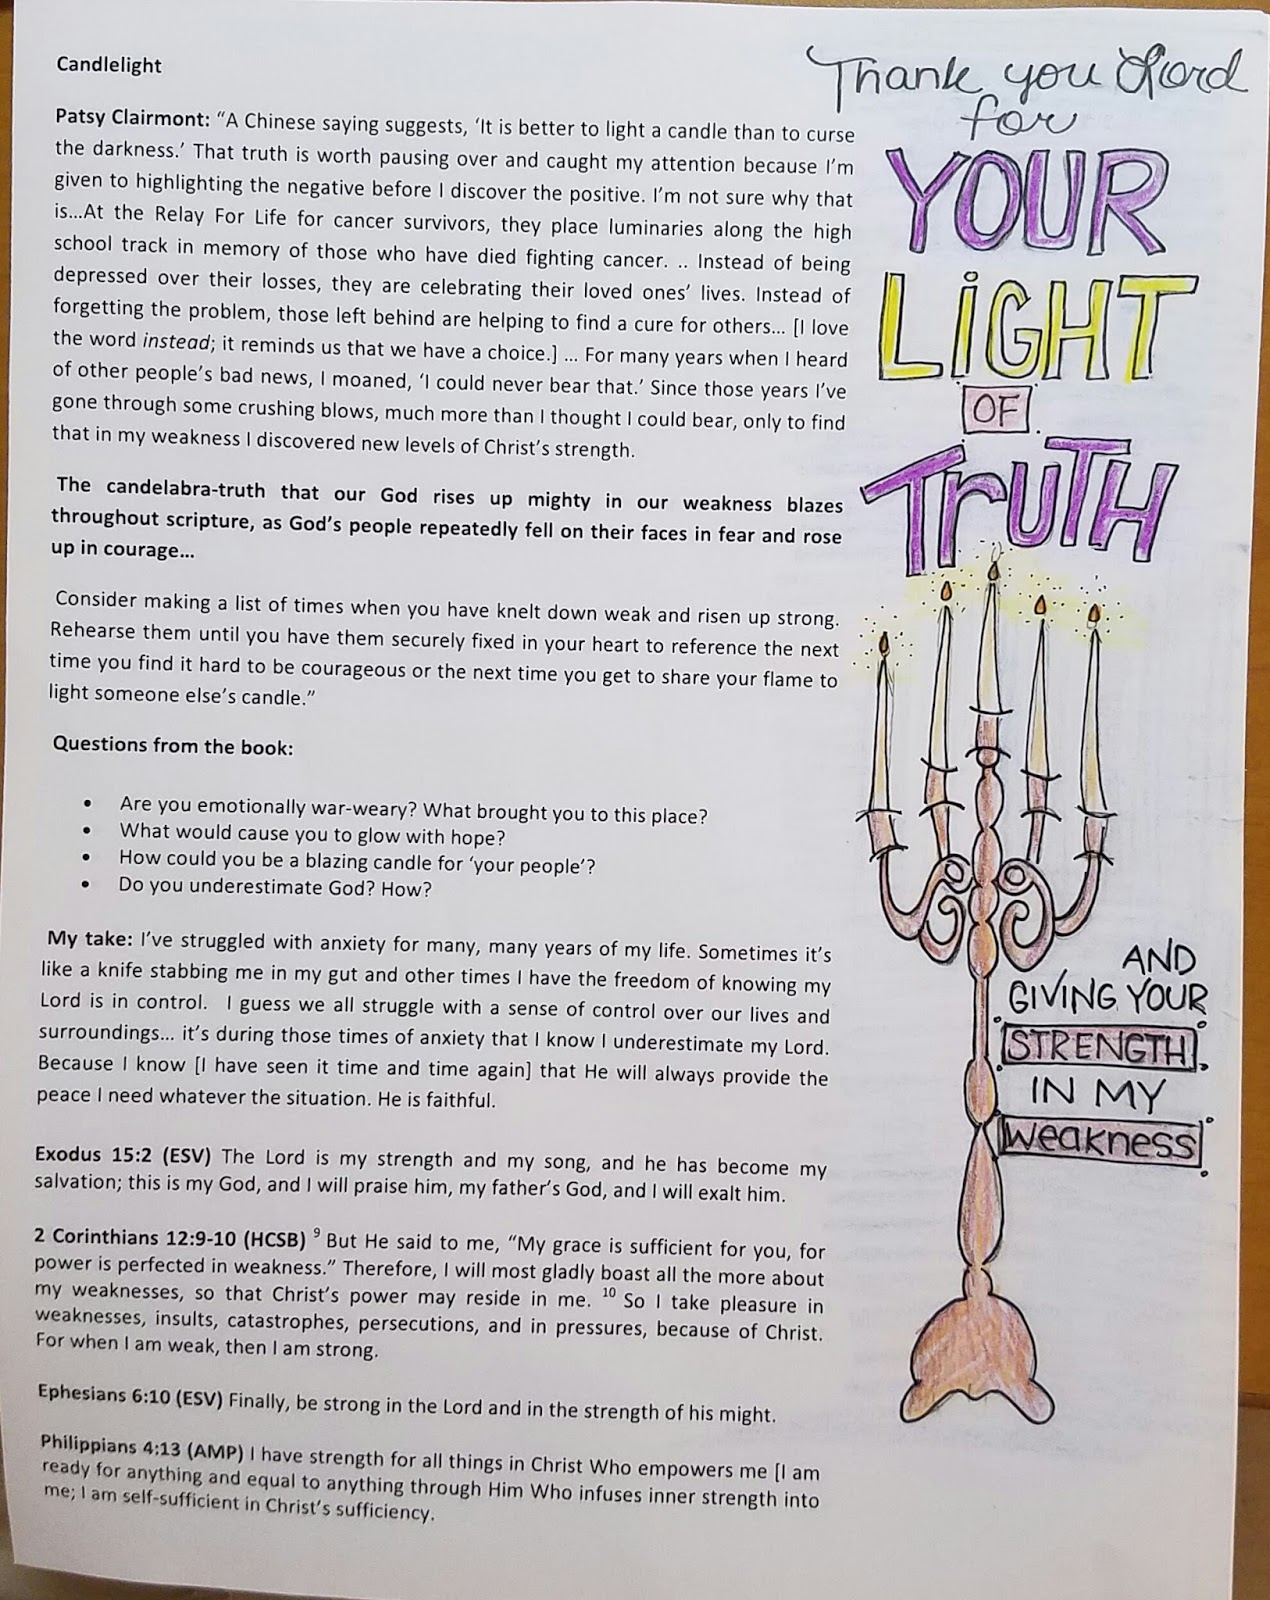 Candlelight
Patsy Clairmont: “A Chinese saying suggests, ‘It is better to light a candle than to curse
the darkness.’ That truth is worth pausing over and caught my attention because I’m
given to highlighting the negative before I discover the positive. I’m not sure why that
is…At the Relay For Life for cancer survivors, they place luminaries along the high
school track in memory of those who have died fighting cancer. .. Instead of being
depressed over their losses, they are celebrating their loved ones’ lives. Instead of
forgetting the problem, those left behind are helping to find a cure for others… [I love
the word instead; it reminds us that we have a choice.] … For many years when I heard
of other people’s bad news, I moaned, ‘I could never bear that.’ Since those years I’ve
gone through some crushing blows, much more than I thought I could bear, only to find
that in my weakness I discovered new levels of Christ’s strength.
The candelabra-truth that our God rises up mighty in our weakness blazes
throughout scripture, as God’s people repeatedly fell on their faces in fear and rose
up in courage…
Consider making a list of times when you have knelt down weak and risen up strong.
Rehearse them until you have them securely fixed in your heart to reference the next
time you find it hard to be courageous or the next time you get to share your flame to
light someone else’s candle.”
Questions from the book:
• Are you emotionally war-weary? What brought you to this place?
• What would cause you to glow with hope?
• How could you be a blazing candle for ‘your people’?
• Do you underestimate God? How?
My take: I’ve struggled with anxiety for many, many years of my life. Sometimes it’s
like a knife stabbing me in my gut and other times I have the freedom of knowing my
Lord is in control. I guess we all struggle with a sense of control over our lives and
surroundings… it’s during those times of anxiety that I know I underestimate my Lord.
Because I know [I have seen it time and time again] that He will always provide the
peace I need whatever the situation. He is faithful.
Exodus 15:2 (ESV) The Lord is my strength and my song, and he has become my
salvation; this is my God, and I will praise him, my father’s God, and I will exalt him.
2 Corinthians 12:9-10 (HCSB) ⁹ But He said to me, “My grace is sufficient for you, for
power is perfected in weakness.” Therefore, I will most gladly boast all the more about
my weaknesses, so that Christ’s power may reside in me. ¹⁰ So I take pleasure in
weaknesses, insults, catastrophes, persecutions, and in pressures, because of Christ.
For when I am weak, then I am strong.
Ephesians 6:10 (ESV) Finally, be strong in the Lord and in the strength of his might.
Philippians 4:13 (AMP) I have strength for all things in Christ Who empowers me [I am
ready for anything and equal to anything through Him Who infuses inner strength into
me; I am self-sufficient in Christ’s sufficiency.
Thank you Lord
for
YOUR
LiGHT
OF
TruTH
AND
GIVING YOUR
STRENGTH
IN MY
Weakness